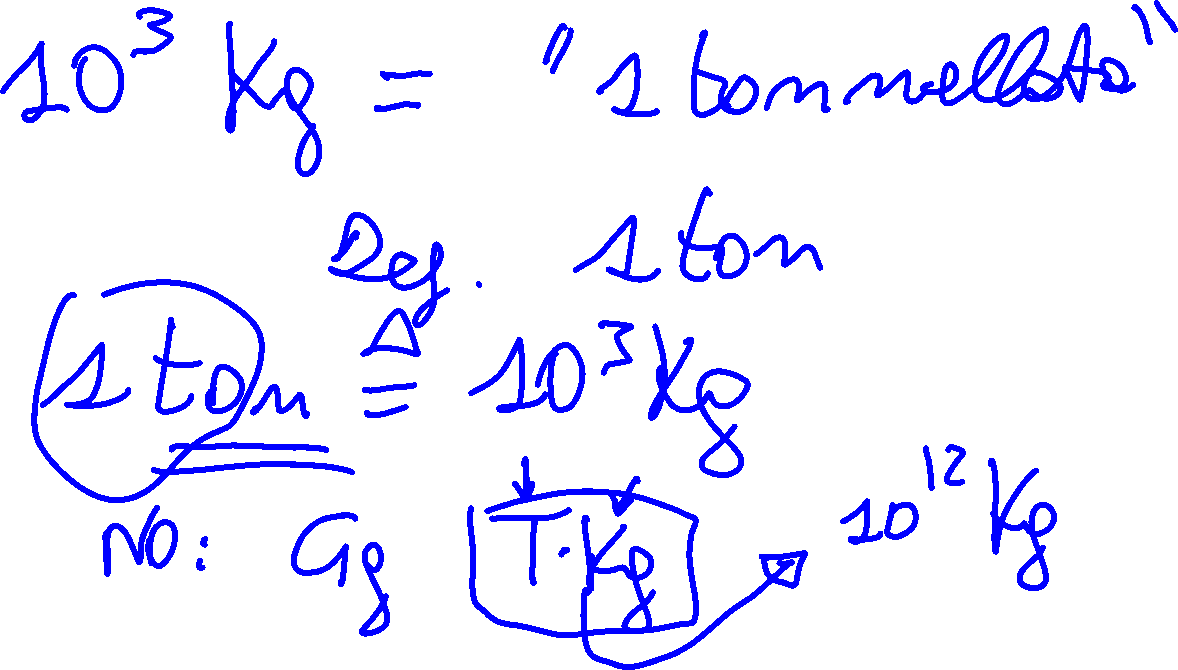 10³ Kg = "1 tonnellata"
Def. 1 ton
1 ton ≜ 10³ Kg
NO: Gg T·Kg 10¹² Kg